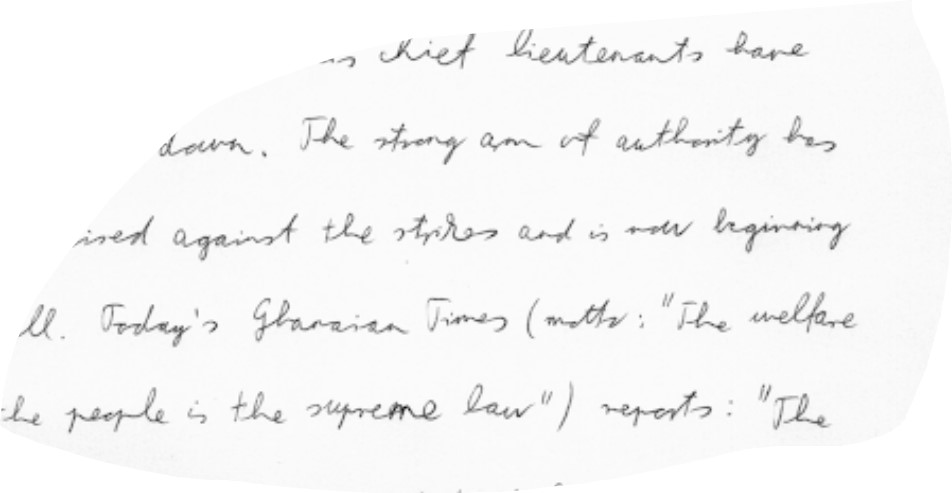 chief lieutenants have
down. The strong arm of authority has
against the strikes and is now beginning
Today's Ghanaian Times (motto: "The welfare
the people is the supreme law") reports: "The